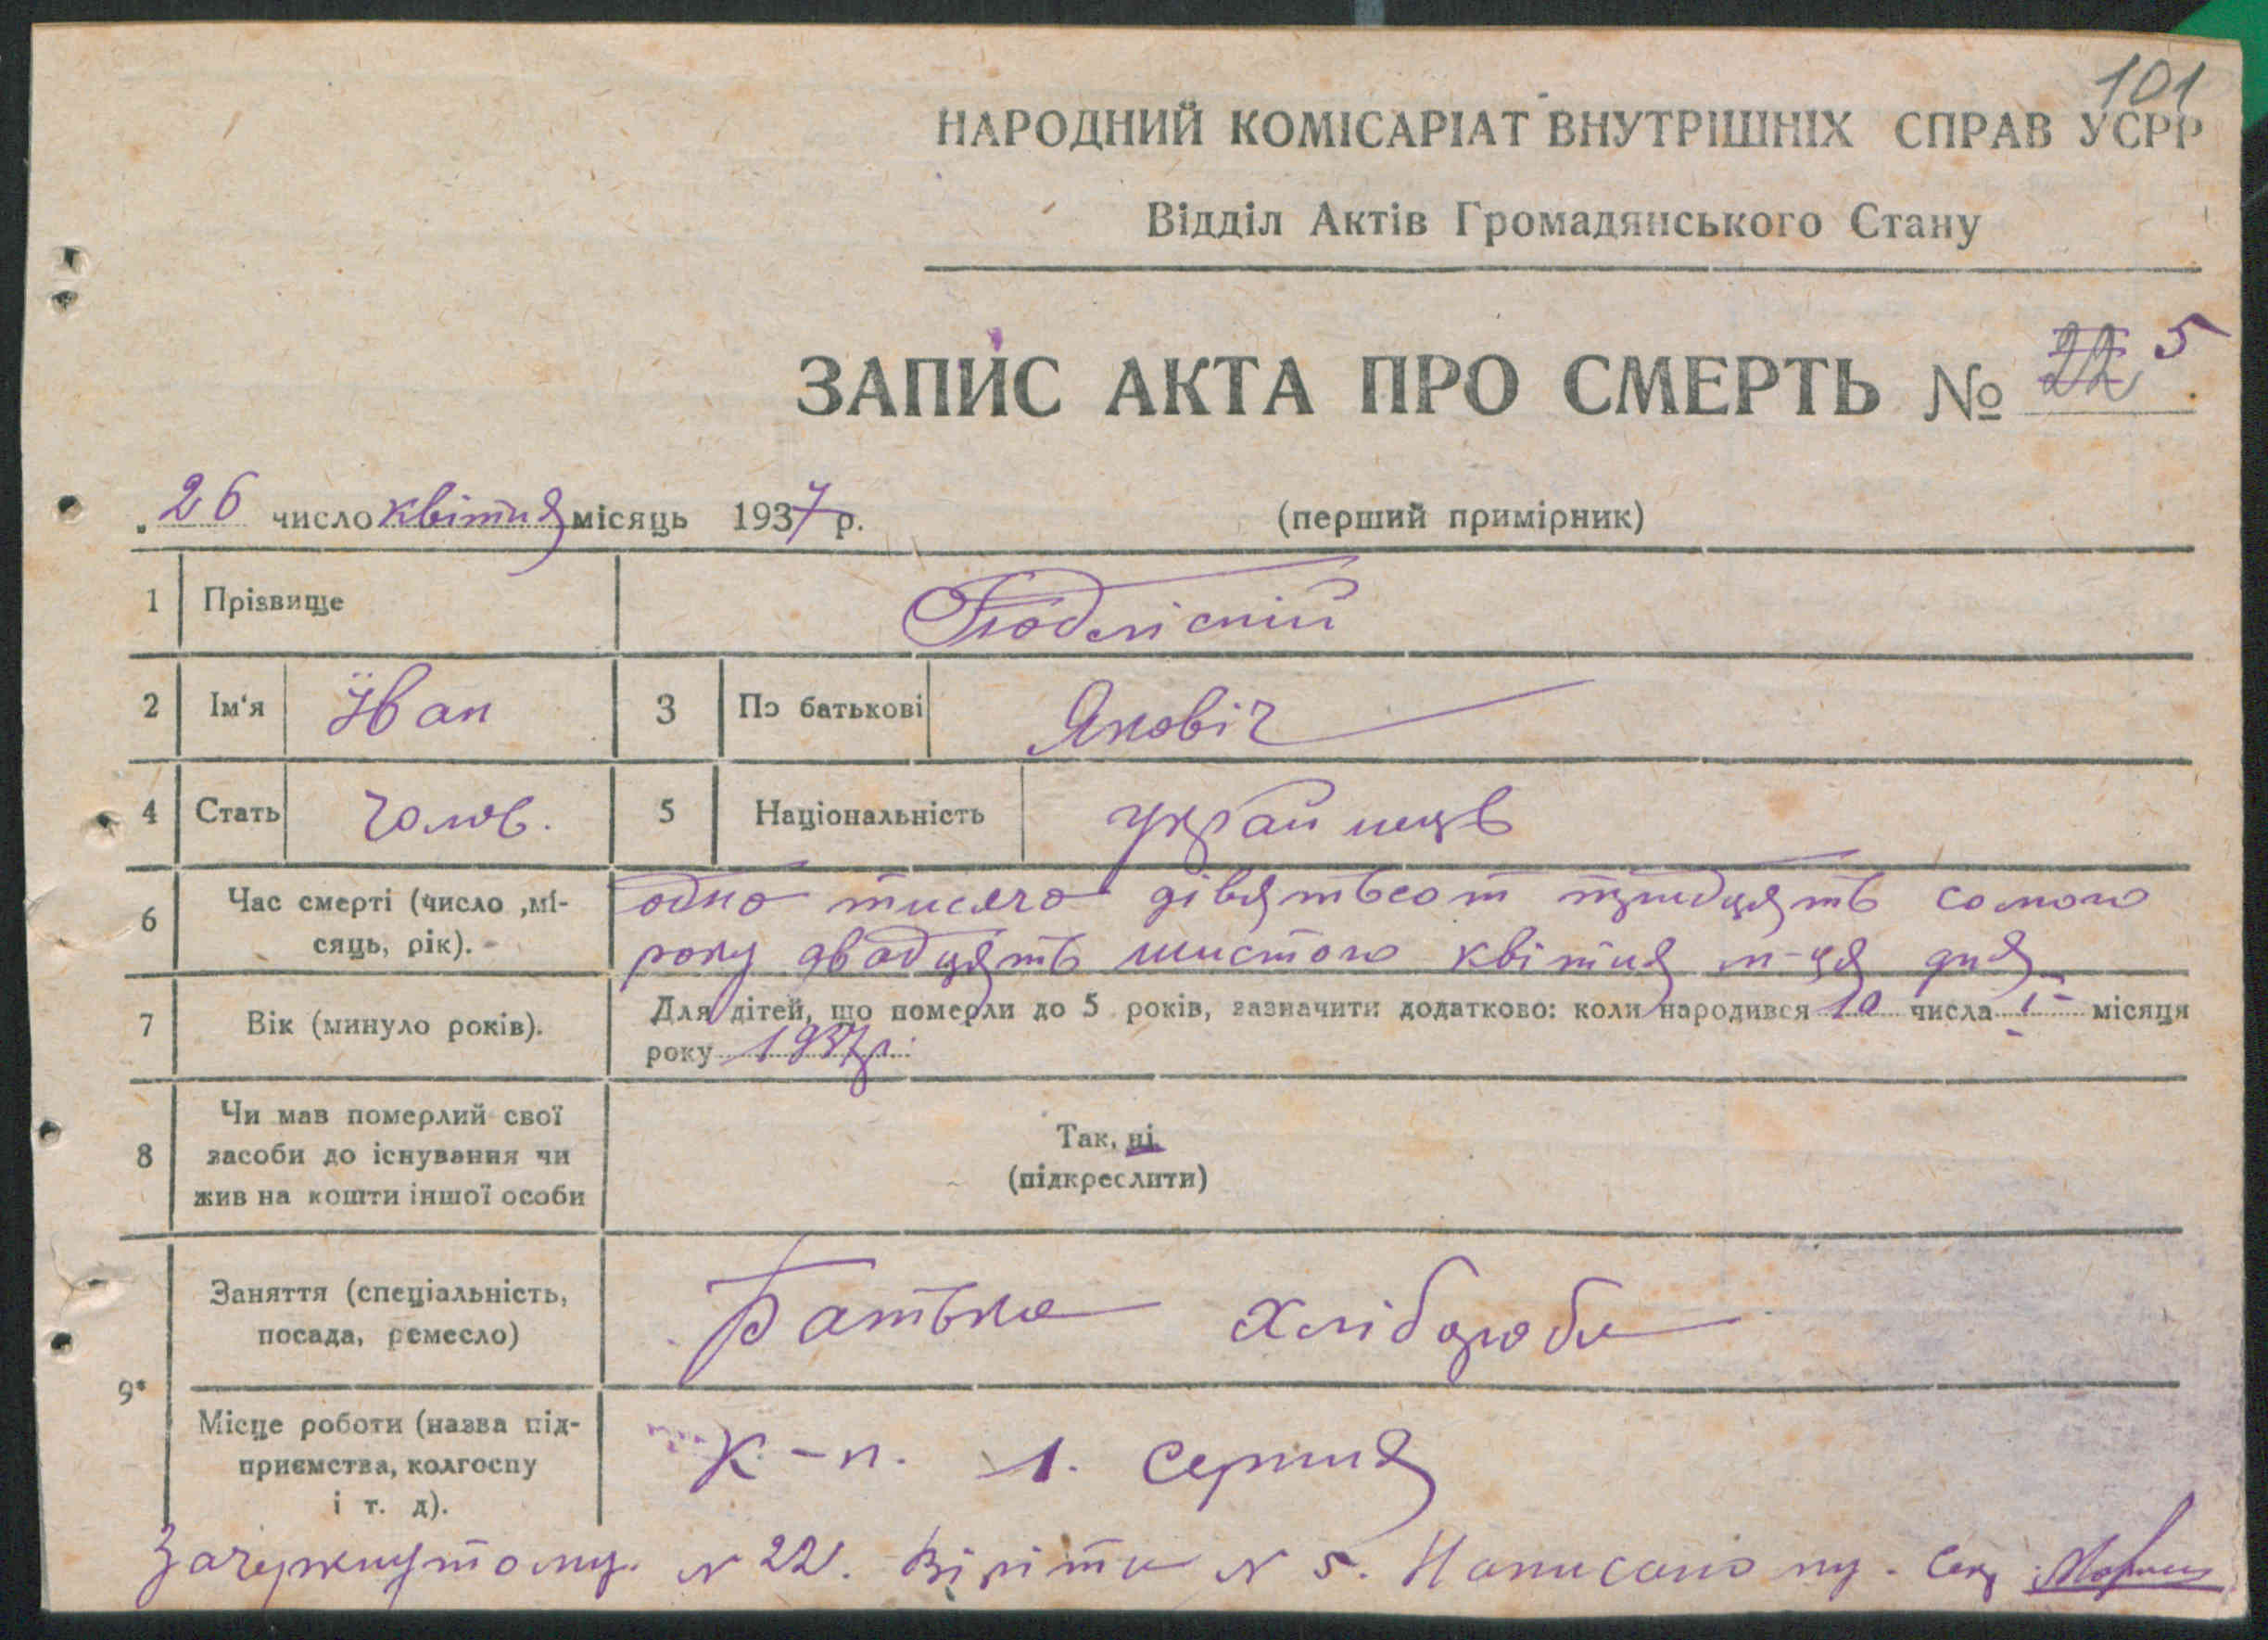 101
НАРОДНИЙ КОМІСАРІАТ ВНУТРІШНІХ СПРАВ УСРР
Відділ Актів Громадянського Стану
ЗАПИС АКТА ПРО СМЕРТЬ № 22 5
26 число квітня місяць 1937 р. (перший примірник)
1 Прізвище
2 Ім'я Іван 3 По батькові Яковіч
4 Стать Чолов. 5 Національність українць
6 Час смерті (число, мі- одно тисяча дівятьсот тридцять сомого
сяць, рік). року двадцять шистого квітня м-ця дня
7 Вік (минуло років). Для дітей, що померли до 5 років, зазначити додатково: коли народився 10 числа I місяця
року 1937 р.
8 Чи мав померлий свої
засоби до існування чи
жив на кошти іншої особи
Так, ні
(підкреслити)
9* Заняття (спеціальність,
посада, ремесло)
Батько Хлібороб
Місце роботи (назва під-
приємства, колгоспу
і т. д).
к-п. 1. Серпня
Зачеркнутому № 22. Віріти № 5. Написано му. Сек.